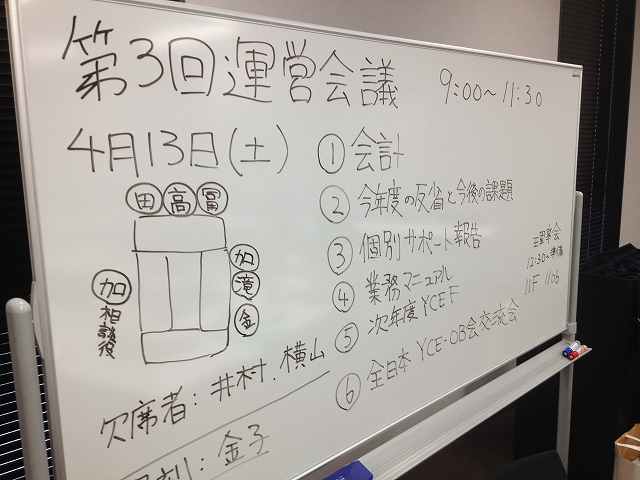 第3回運営会議
9:00〜11:30
4月13日(土)
田 高 冨
加 滝 金
加 相談後
① 会計
② 今年度の反省と今後の課題
③ 個別サポート報告
④ 業務マニュアル
⑤ 次年度 YCEF
⑥ 全日本 YCE-OB会交流会
理事会
12:30〜準備
11F 1106
欠席者: 井村. 横山
刻: 金子